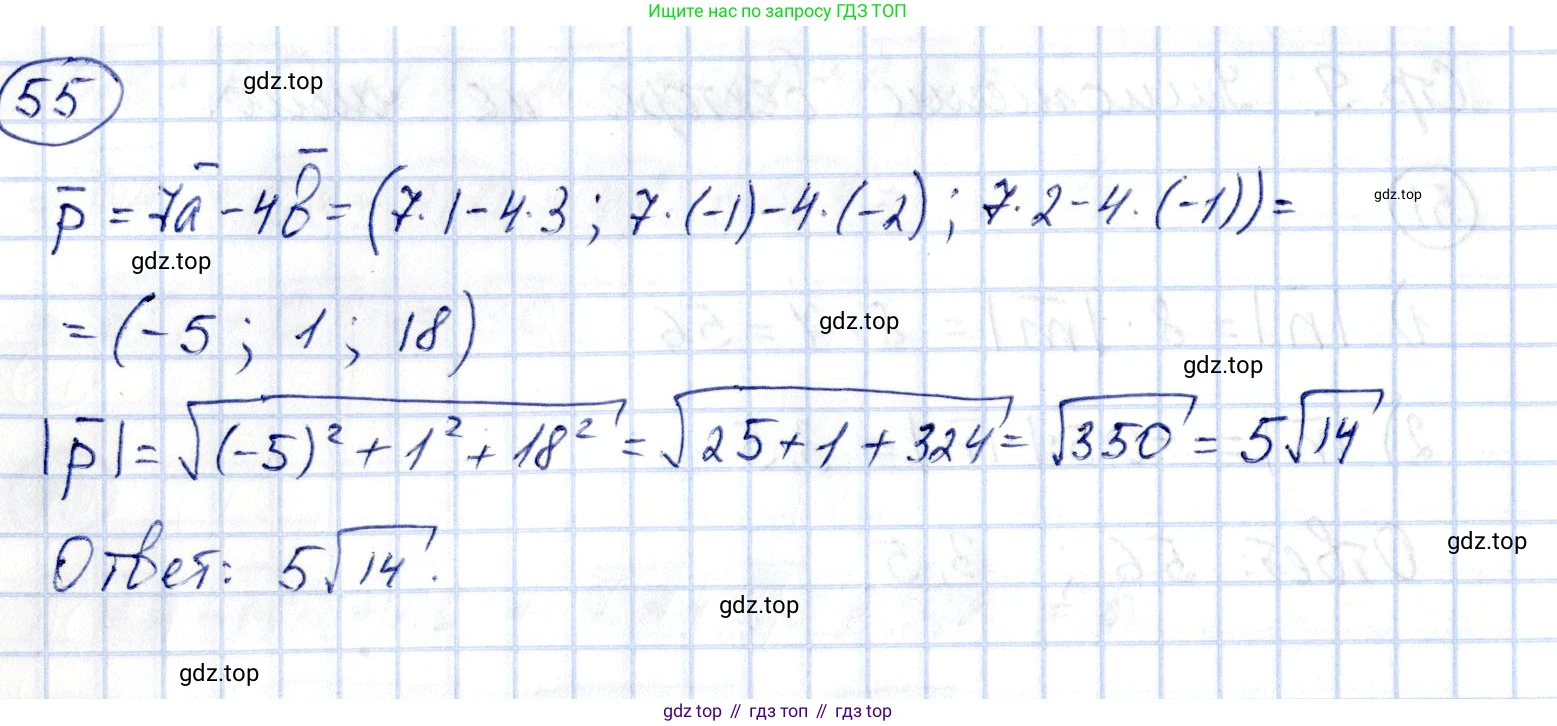 Ищите нас по запросу ГДЗ ТОП
55
gdz.top
p̄ = 7ā - 4b̄ = (7·1 - 4·3 ; 7·(-1) - 4·(-2) ; 7·2 - 4·(-1)) =
gdz.top
gdz.top
= (-5 ; 1 ; 18)
gdz.top
gdz.top
|p̄| = √((-5)² + 1² + 18²) = √(25 + 1 + 324) = √350 = 5√14
Ответ: 5√14.
gdz.top
gdz.top
gdz.top
gdz top // гдз топ // гдз top